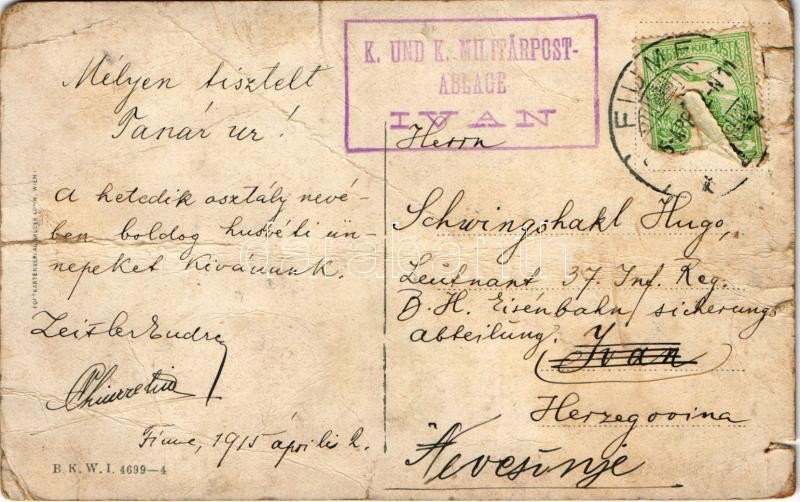 Mélyen tisztelt
Tanár ur!
A hetedik osztály nevé-
ben boldog husvéti ün-
nepeket kivánunk.
Zeisler Endre
Fiume, 1915 április 2.
B.K.W.I. 4699-4
K. UND K. MILITÄRPOST-
ABLAGE
IVAN
FIUME
Herrn
Schwingshakl Hugo,
Leutnant 37. Inf. Reg.
B. H. Eisenbahn sicherungs
abteilung.
Ivan
Herzegovina
Nevesinje